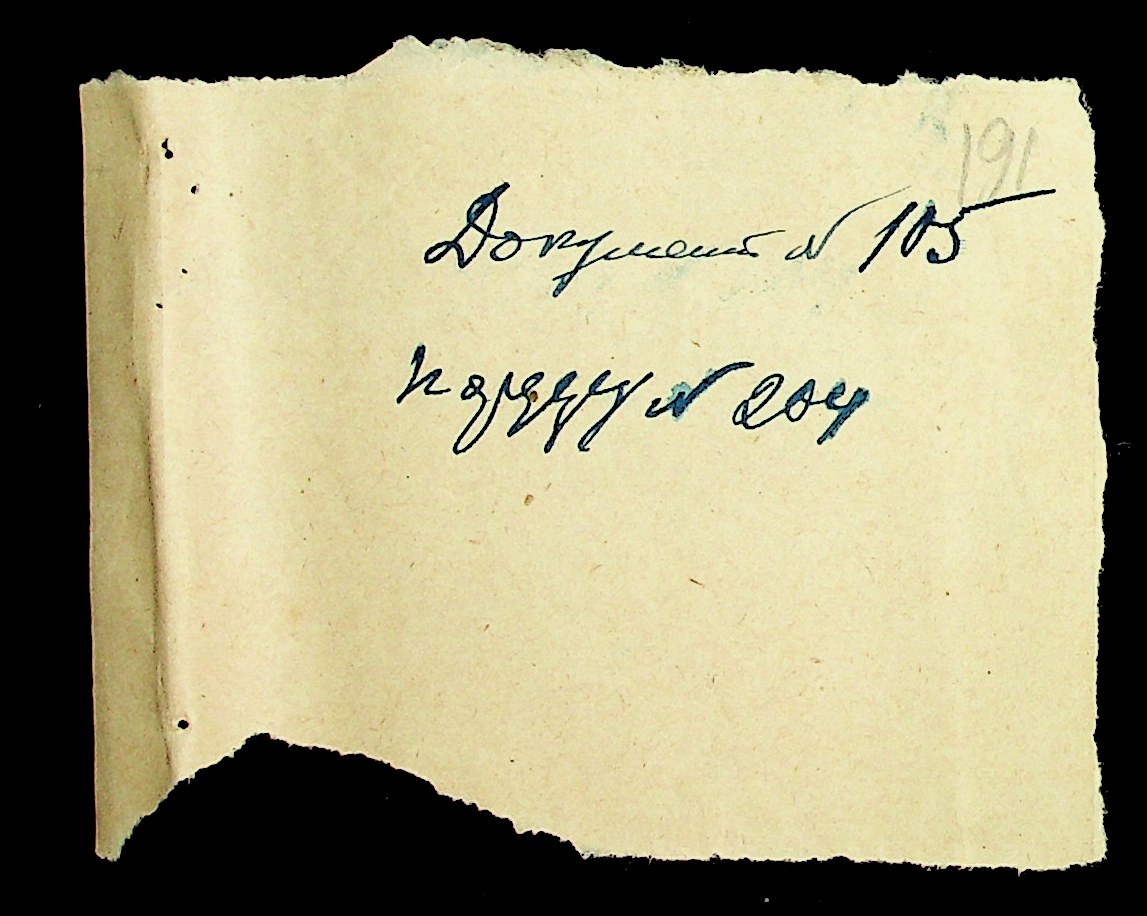 191
Документ № 105
к ордеру № 204